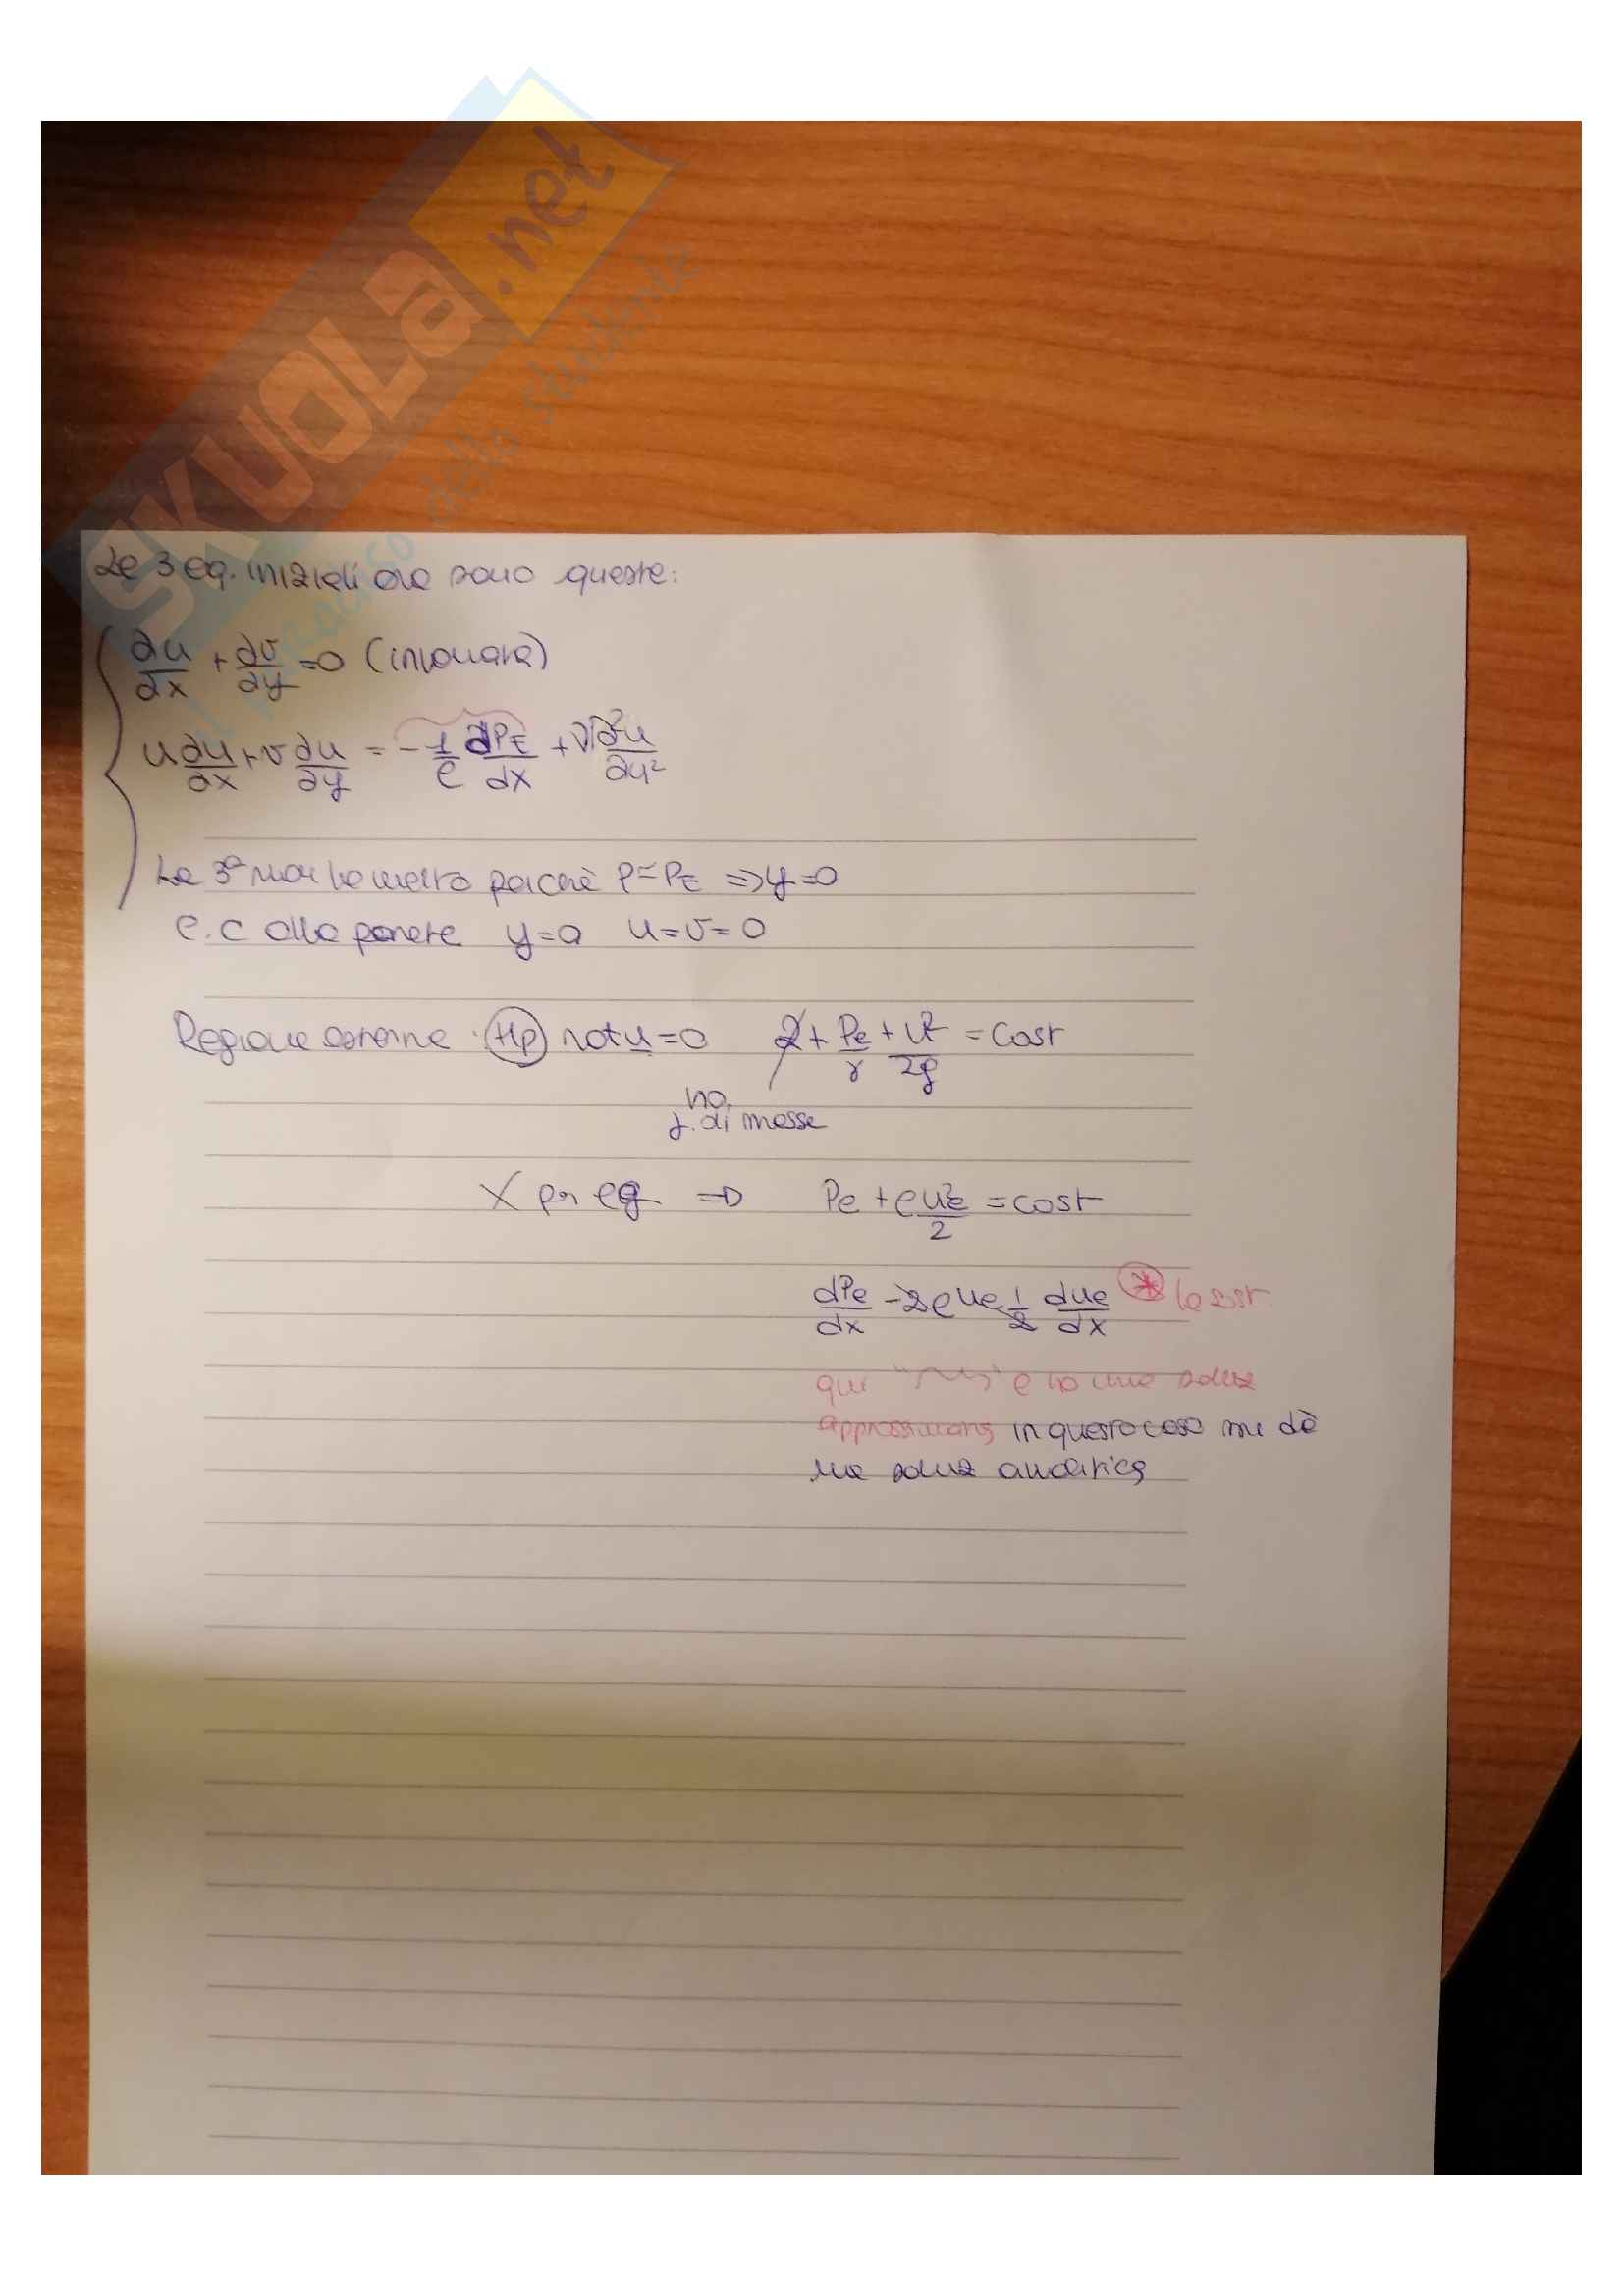 SKUOLA.net
il paradiso dello studente
Le 3 eq. iniziali ora sono queste:
∂u/∂x + ∂v/∂y = 0
u ∂u/∂x + v ∂u/∂y = - 1/ρ dPE/dx + ν ∂²u/∂y²
La 3ª non la metto perchè P=PE => y=0
C.C alla parete y=0 u=v=0
Regione esterna: Hp rot u=0 z + Pe/γ + u²/2g = cost
no
f. di massa
X per ρg => Pe + ρ ue²/2 = cost
dPe/dx - 2ρ ue 1/2 due/dx * lo sost
qui " " e ho una soluz
approssimata in questo caso mi dà
una soluz analitica